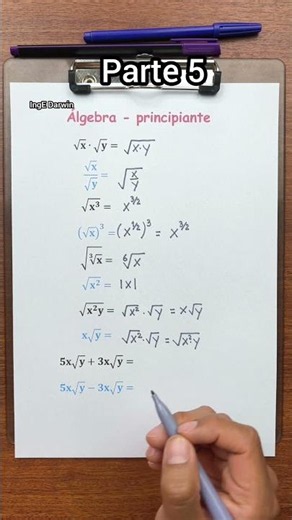 Parte 5
IngE Darwin
Álgebra - principiante
√x · √y = √x·y
√x/√y = √x/y
√x³ = x^3/2
(√x)³ = (x^1/2)³ = x^3/2
√∛x = ⁶√x
√x² = |x|
√x²y = √x² · √y = x√y
x√y = √x² · √y = √x²·y
5x√y + 3x√y =
5x√y − 3x√y =